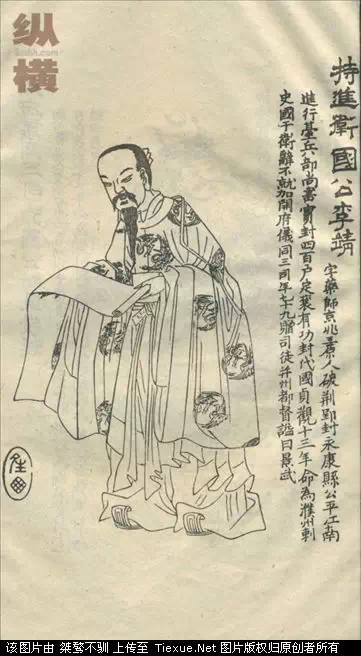 纵横
特進衛國公李靖
字藥師京兆三原人破荆郢封永康縣公平江南
進行臺兵部尚書實封四百户定襄有功封代國貞觀十三年命為濮州刺
史國于衛辭不就加開府儀同三司年七十九贈司徒并州都督謚曰景武
该图片由 桀骜不驯 上传至 Tiexue.Net 图片版权归原创者所有